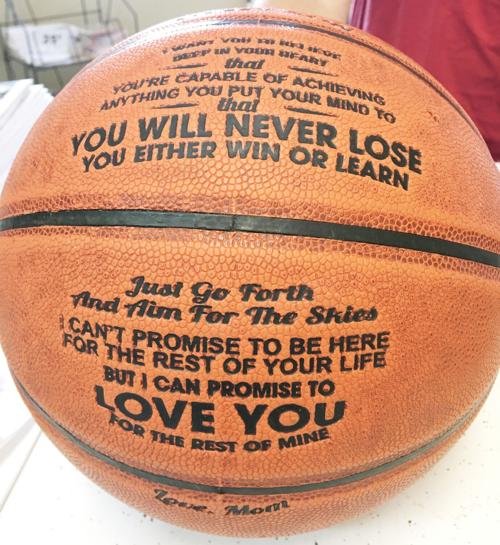 I WANT YOU TO BELIEVE
DEEP IN YOUR HEART
that
YOU'RE CAPABLE OF ACHIEVING
ANYTHING YOU PUT YOUR MIND TO
that
YOU WILL NEVER LOSE
YOU EITHER WIN OR LEARN
Just Go Forth
And Aim For The Skies
I CAN'T PROMISE TO BE HERE
FOR THE REST OF YOUR LIFE
BUT I CAN PROMISE TO
LOVE YOU
FOR THE REST OF MINE
Love, Mom